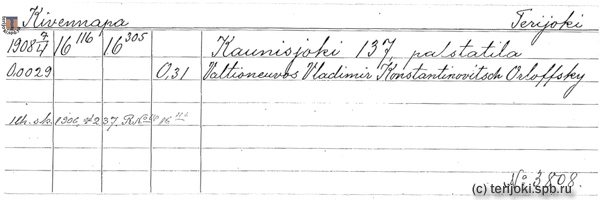 Kivennapa Terijoki
1908 7/4 16 116 16 305 Kaunisjoki 137, palstatila
0.0029 0,31 Valtioneuvos Vladimir Konstantinovitsch Orloffsky
1906, 37,
No 3808.
(c) terijoki.spb.ru